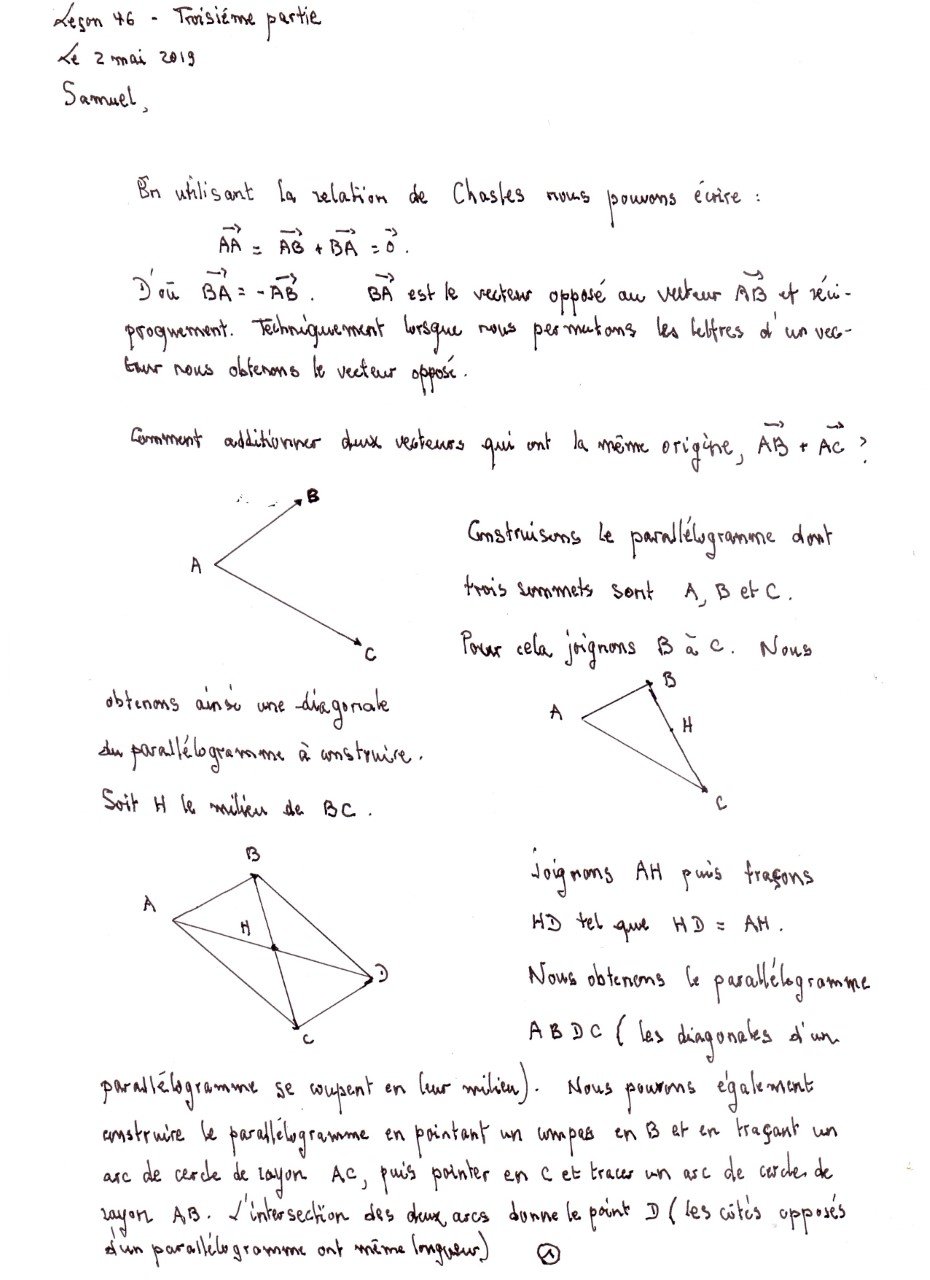 Leçon 46 - Troisiéme partie
Le 2 mai 2019
Samuel,
En utilisant la relation de Chasles nous pouvons écrire :
AA⃗ = AB⃗ + BA⃗ = 0⃗.
D'où BA⃗ = -AB⃗. BA⃗ est le vecteur opposé au vecteur AB⃗ et réci-
proquement. Techniquement lorsque nous permutons les lettres d'un vec-
teur nous obtenons le vecteur opposé.
Comment additionner deux vecteurs qui ont la même origine, AB⃗ + AC⃗ ?
B
A
C
Construisons le parallélogramme dont
trois sommets sont A, B et C.
Pour cela joignons B à C. Nous
obtenons ainsi une diagonale
du parallélogramme à construire.
Soit H le milieu de BC.
B
A
H
C
B
A
H
D
C
Joignons AH puis traçons
HD tel que HD = AH.
Nous obtenons le parallélogramme
ABDC (les diagonales d'un
parallélogramme se coupent en leur milieu). Nous pouvons également
construire le parallélogramme en pointant un compas en B et en traçant un
arc de cercle de rayon AC, puis pointer en C et tracer un arc de cercle de
rayon AB. L'intersection des deux arcs donne le point D (les côtés opposés
d'un parallélogramme ont même longueur) ①